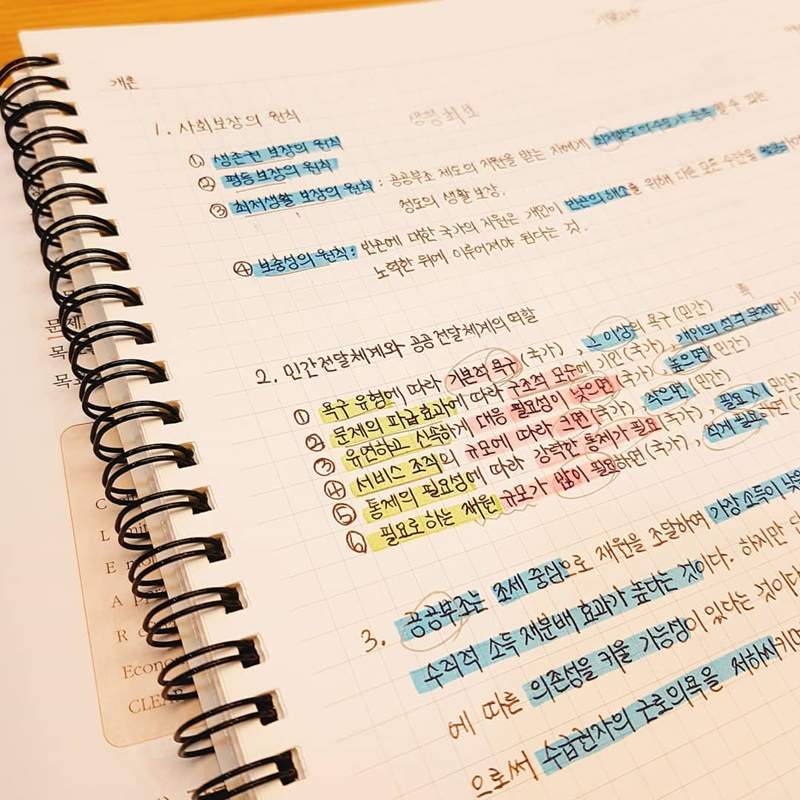 개론
1. 사회보장의 원칙
① 생존권 보장의 원칙
② 평등보장의 원칙
③ 최저생활 보장의 원칙 : 공공부조 제도의 지원을 받는 자에게 최저한도의 수요가 충족 할 수 있는
정도의 생활 보장.
④ 보충성의 원칙 : 빈곤에 대한 국가의 지원은 개인이 빈곤의 해소를 위해 다른 모든 수단을
노력한 뒤에 이루어져야 된다는 것.
2. 민간전달체계와 공공전달체계의 역할
혹
① 욕구 유형에 따라 기본적 욕구(국가), 그 이상의 욕구(민간)
② 문제의 파급효과에 따라 구조적 모순에 기인(국가), 개인의 성격 문제에
③ 유연하고 신속하게 대응 필요성이 낮으면(국가), 높으면(민간)
④ 서비스 조직의 규모에 따라 크면(국가), 작으면(민간)
⑤ 통제의 필요성에 따라 강력한 통제가 필요(국가), 필요 X(민간)
⑥ 필요로 하는 재원 규모가 많이 필요하면(국가), 적게 필요하면
3. 공공부조는 조세 중심으로 재원을 조달하여 가장 소득이
수직적 소득 재분배 효과가 높다는 것이다. 하지만
에 따른 의존성을 키울 가능성이 있다는 것이다
으로써 수급권자의 근로의욕을 저하시키
문제
목
목
C
L
E
A
R
Econo
CLEAR